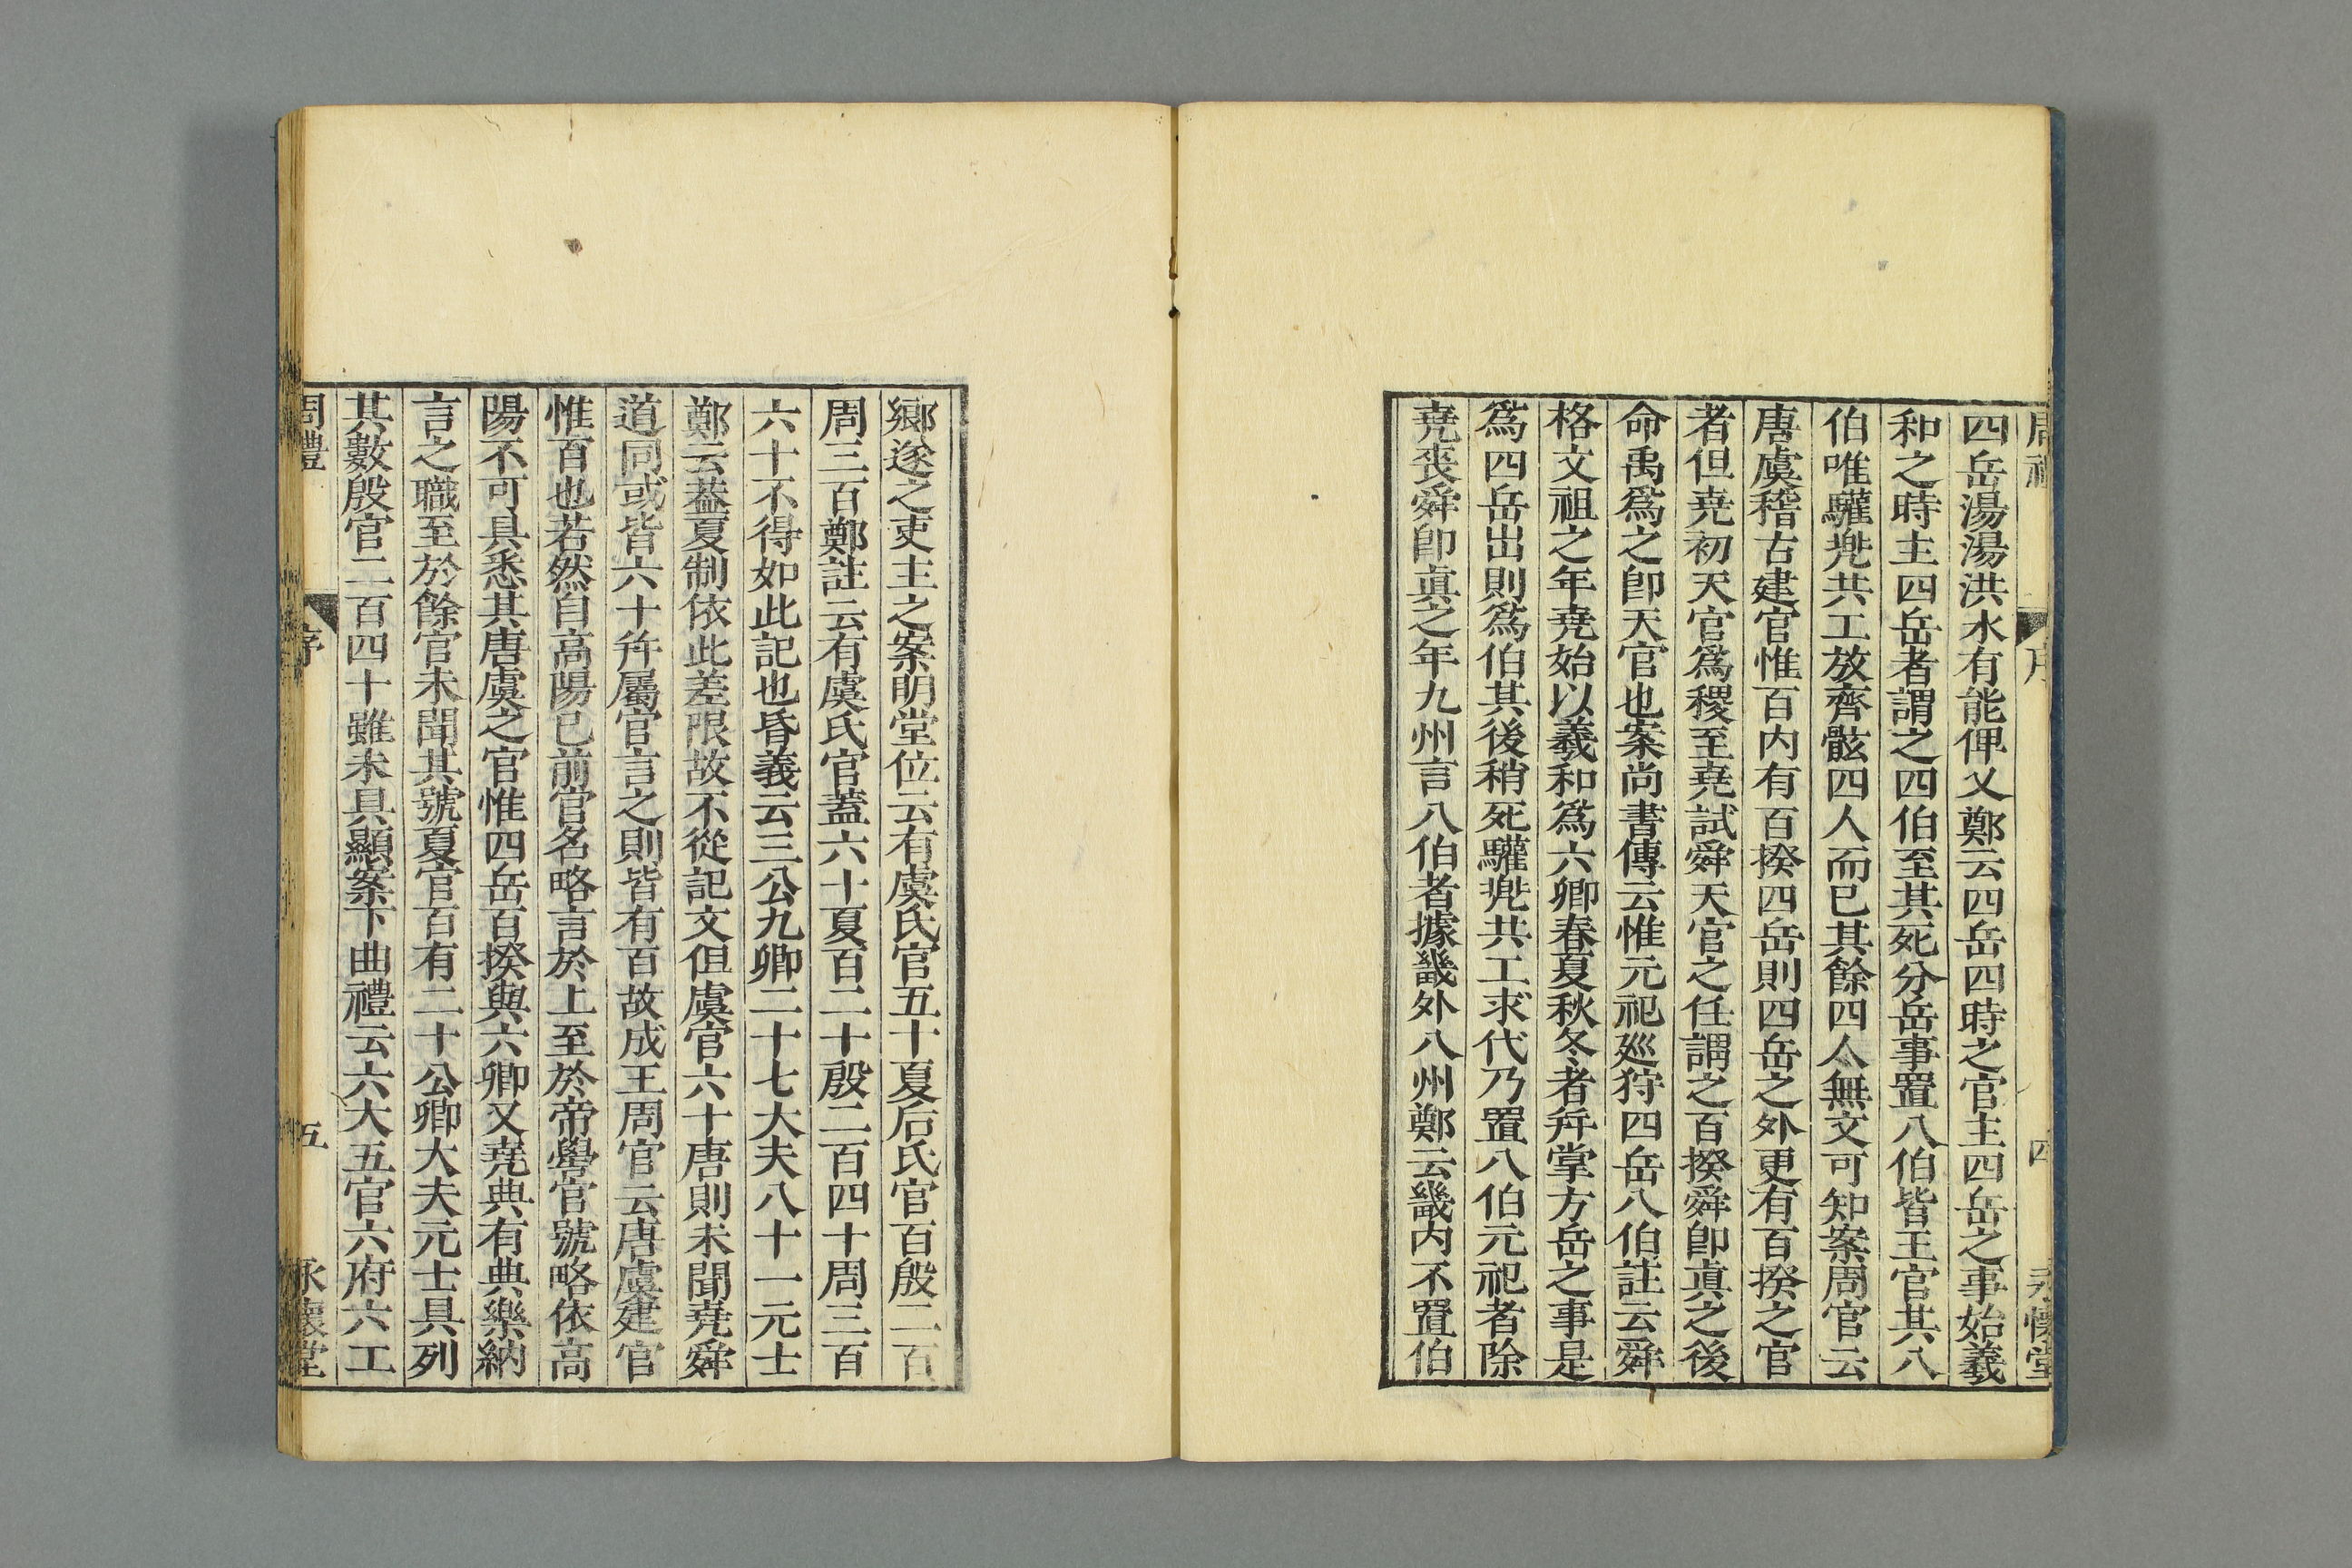 周禮
序
四
永懷堂
四岳湯湯洪水有能俾乂鄭云四岳四時之官主四岳之事始羲
和之時主四岳者謂之四伯至其死分岳事置八伯皆王官其八
伯唯驩兠共工放齊骸四人而已其餘四人無文可知案周官云
唐虞稽古建官惟百内有百揆四岳則四岳之外更有百揆之官
者但堯初天官爲稷至堯試舜天官之任謂之百揆舜卽眞之後
命禹爲之卽天官也案尚書傳云惟元祀廵狩四岳八伯註云舜
格文祖之年堯始以羲和爲六卿春夏秋冬者幷掌方岳之事是
爲四岳出則爲伯其後稍死驩兠共工求代乃置八伯元祀者除
堯喪舜卽眞之年九州言八伯者據畿外八州鄭云畿内不置伯
鄉遂之吏主之案明堂位云有虞氏官五十夏后氏官百殷二百
周三百鄭註云有虞氏官蓋六十夏百二十殷二百四十周三百
六十不得如此記也昏義云三公九卿二十七大夫八十一元士
鄭云葢夏制依此差限故不從記文但虞官六十唐則未聞堯舜
道同或皆六十幷屬官言之則皆有百故成王周官云唐虞建官
惟百也若然自高陽已前官名略言於上至於帝嚳官號略依高
陽不可具悉其唐虞之官惟四岳百揆與六卿又堯典有典樂納
言之職至於餘官未聞其號夏官百有二十公卿大夫元士具列
其數殷官二百四十雖未具顯案下曲禮云六大五官六府六工
周禮
序
五
永懷堂